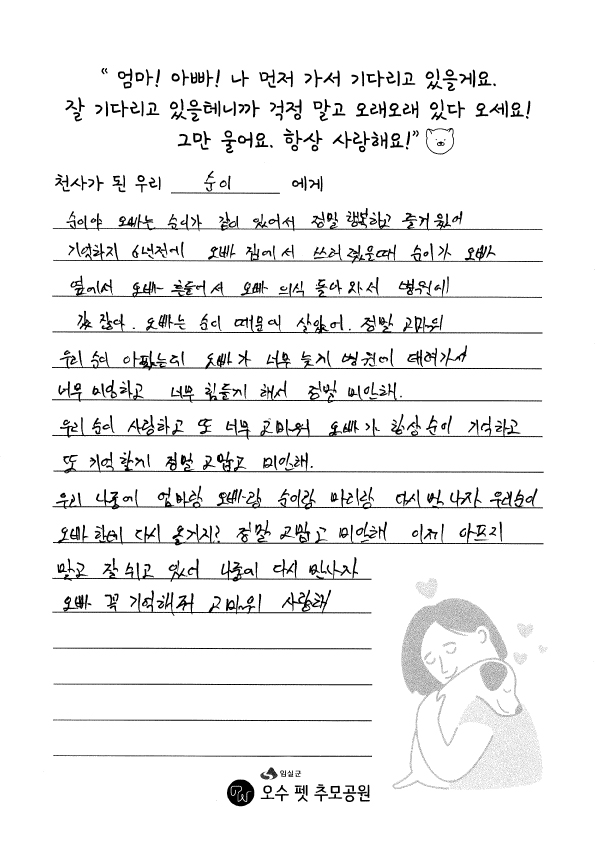 “ 엄마! 아빠! 나 먼저 가서 기다리고 있을게요.
잘 기다리고 있을테니까 걱정 말고 오래오래 있다 오세요!
그만 울어요. 항상 사랑해요!”
천사가 된 우리 순이 에게
순이야 오빠는 순이가 같이 있어서 정말 행복하고 즐거웠어
기억하지 6년전에 오빠 집에서 쓰러졌을때 순이가 오빠
옆에서 오빠 흔들어서 오빠 의식 돌아와서 병원에
갔잖아. 오빠는 순이 때문에 살았어. 정말 고마워
우리 순이 아팠는데 오빠가 너무 늦게 병원에 데려가서
너무 미안하고 너무 힘들게 해서 정말 미안해.
우리 순이 사랑하고 또 너무 고마워 오빠가 항상 순이 기억하고
또 기억할게 정말 고맙고 미안해.
우리 나중에 엄마랑 오빠랑 순이랑 마리랑 다시 만나자 우리순이
오빠한테 다시 올거지? 정말 고맙고 미안해 이제 아프지
말고 잘 쉬고 있어 나중에 다시 만나자
오빠 꼭 기억해줘 고마워 사랑해
임실군
오수 펫 추모공원